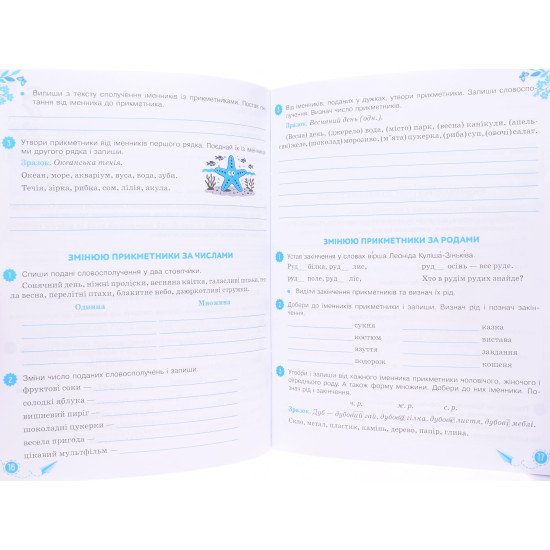 Випиши з тексту сполучення іменників із прикметниками. Постав питання від іменника до прикметника.
3 Утвори прикметники від іменників першого рядка. Поєднай їх із іменниками другого рядка і запиши.
Зразок. Океанська течія.
Океан, море, акваріум, вуса, вода, зуби.
Течія, зірка, рибка, сом, лілія, акула.
ЗМІНЮЮ ПРИКМЕТНИКИ ЗА ЧИСЛАМИ
1 Спиши подані словосполучення у два стовпчики.
Сонячний день, ніжні проліски, весняна квітка, галасливі шпаки, тепла весна, перелітні птахи, блакитне небо, дзюркотливі струмки.
Однина Множина
2 Зміни число поданих словосполучень і запиши.
фруктові соки —
солодкі яблука —
вишневий пиріг —
шоколадні цукерки —
весела пригода —
цікавий мультфільм —
16
1 Від іменників, поданих у дужках, утвори прикметники. Запиши словосполучення. Визнач число прикметників.
Зразок. Весняний день (одн.).
(Весна) день, (джерело) вода, (місто) парк, (весна) канікули, (апельсин) желе, (шоколад) морозиво, (м'ята) цукерка, (риба) суп, (овочі) салат.
ЗМІНЮЮ ПРИКМЕТНИКИ ЗА РОДАМИ
1 Устав закінчення у словах вірша Леоніда Куліша-Зіньківа.
Руд__ білка, руд__ лис, руд__ осінь — все руде.
руд__ поле, руд__ ліс, Хто в рудім рудих знайде?
Виділи закінчення прикметників та визнач їх рід.
2 Добери до іменників прикметники і запиши. Визнач рід і познач закінчення.
сукня казка
костюм вистава
взуття завдання
подорож кошеня
3 Утвори і запиши від кожного іменника прикметники чоловічого, жіночого і середнього роду. А також форму множини. Добери до них іменники. Познач рід і закінчення.
ч. р. ж. р. с. р.
Зразок. Дуб — дубовий гай, дубова гілка, дубове листя, дубові меблі.
Скло, метал, пластик, камінь, дерево, папір, глина.
17